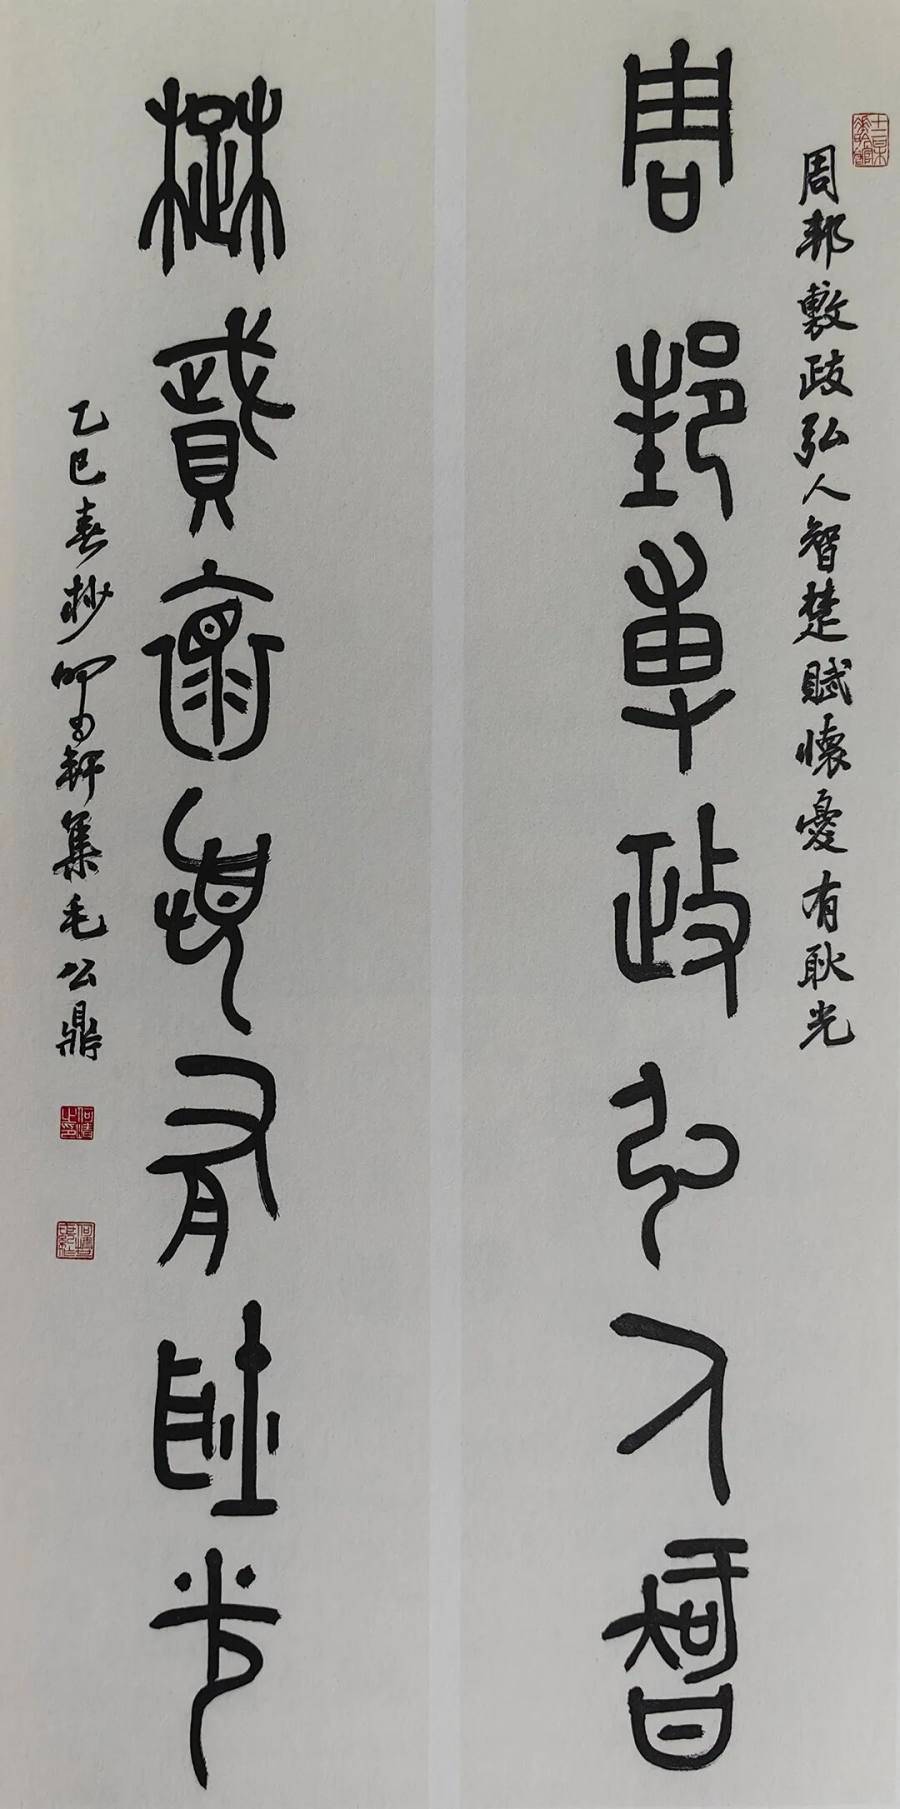 周邦尃政弘人智
楚賦懷憂有耿光
周邦敷政弘人智楚賦懷憂有耿光
乙巳春杪 軒集毛公鼎